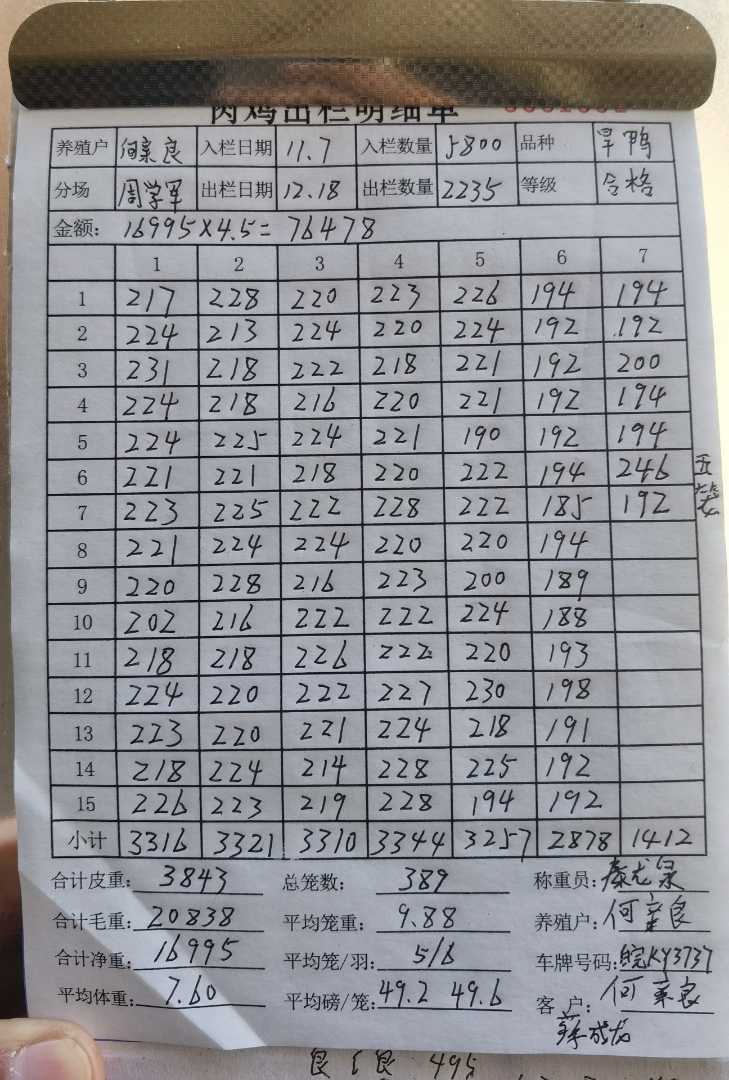 肉鸡出栏明细单
养殖户 何家良 入栏日期 11.7 入栏数量 5800 品种 旱鸭
分场 周学军 出栏日期 12.18 出栏数量 2235 等级 合格
金额: 16995×4.5= 76478
1 2 3 4 5 6 7
1 217 228 220 223 226 194 194
2 224 213 224 220 224 192 192
3 231 218 222 218 221 192 200
4 224 218 216 220 221 192 194
5 224 225 224 221 190 192 194
6 221 221 218 220 222 194 246 五袋
7 223 225 222 228 222 185 192
8 221 224 224 220 220 194
9 220 228 216 223 200 189
10 202 216 222 222 224 188
11 218 218 226 222 220 193
12 224 220 222 227 230 198
13 223 220 221 224 218 191
14 218 224 214 228 225 192
15 226 223 219 228 194 192
小计 3316 3321 3310 3344 3257 2878 1412
合计皮重: 3843 总笼数: 389 称重员:
合计毛重: 20838 平均笼重: 9.88 养殖户: 何家良
合计净重: 16995 平均笼/羽: 5/6 车牌号码: 皖KY3737
平均体重: 7.60 平均磅/笼: 49.2 49.6 客 户: 何家良
495